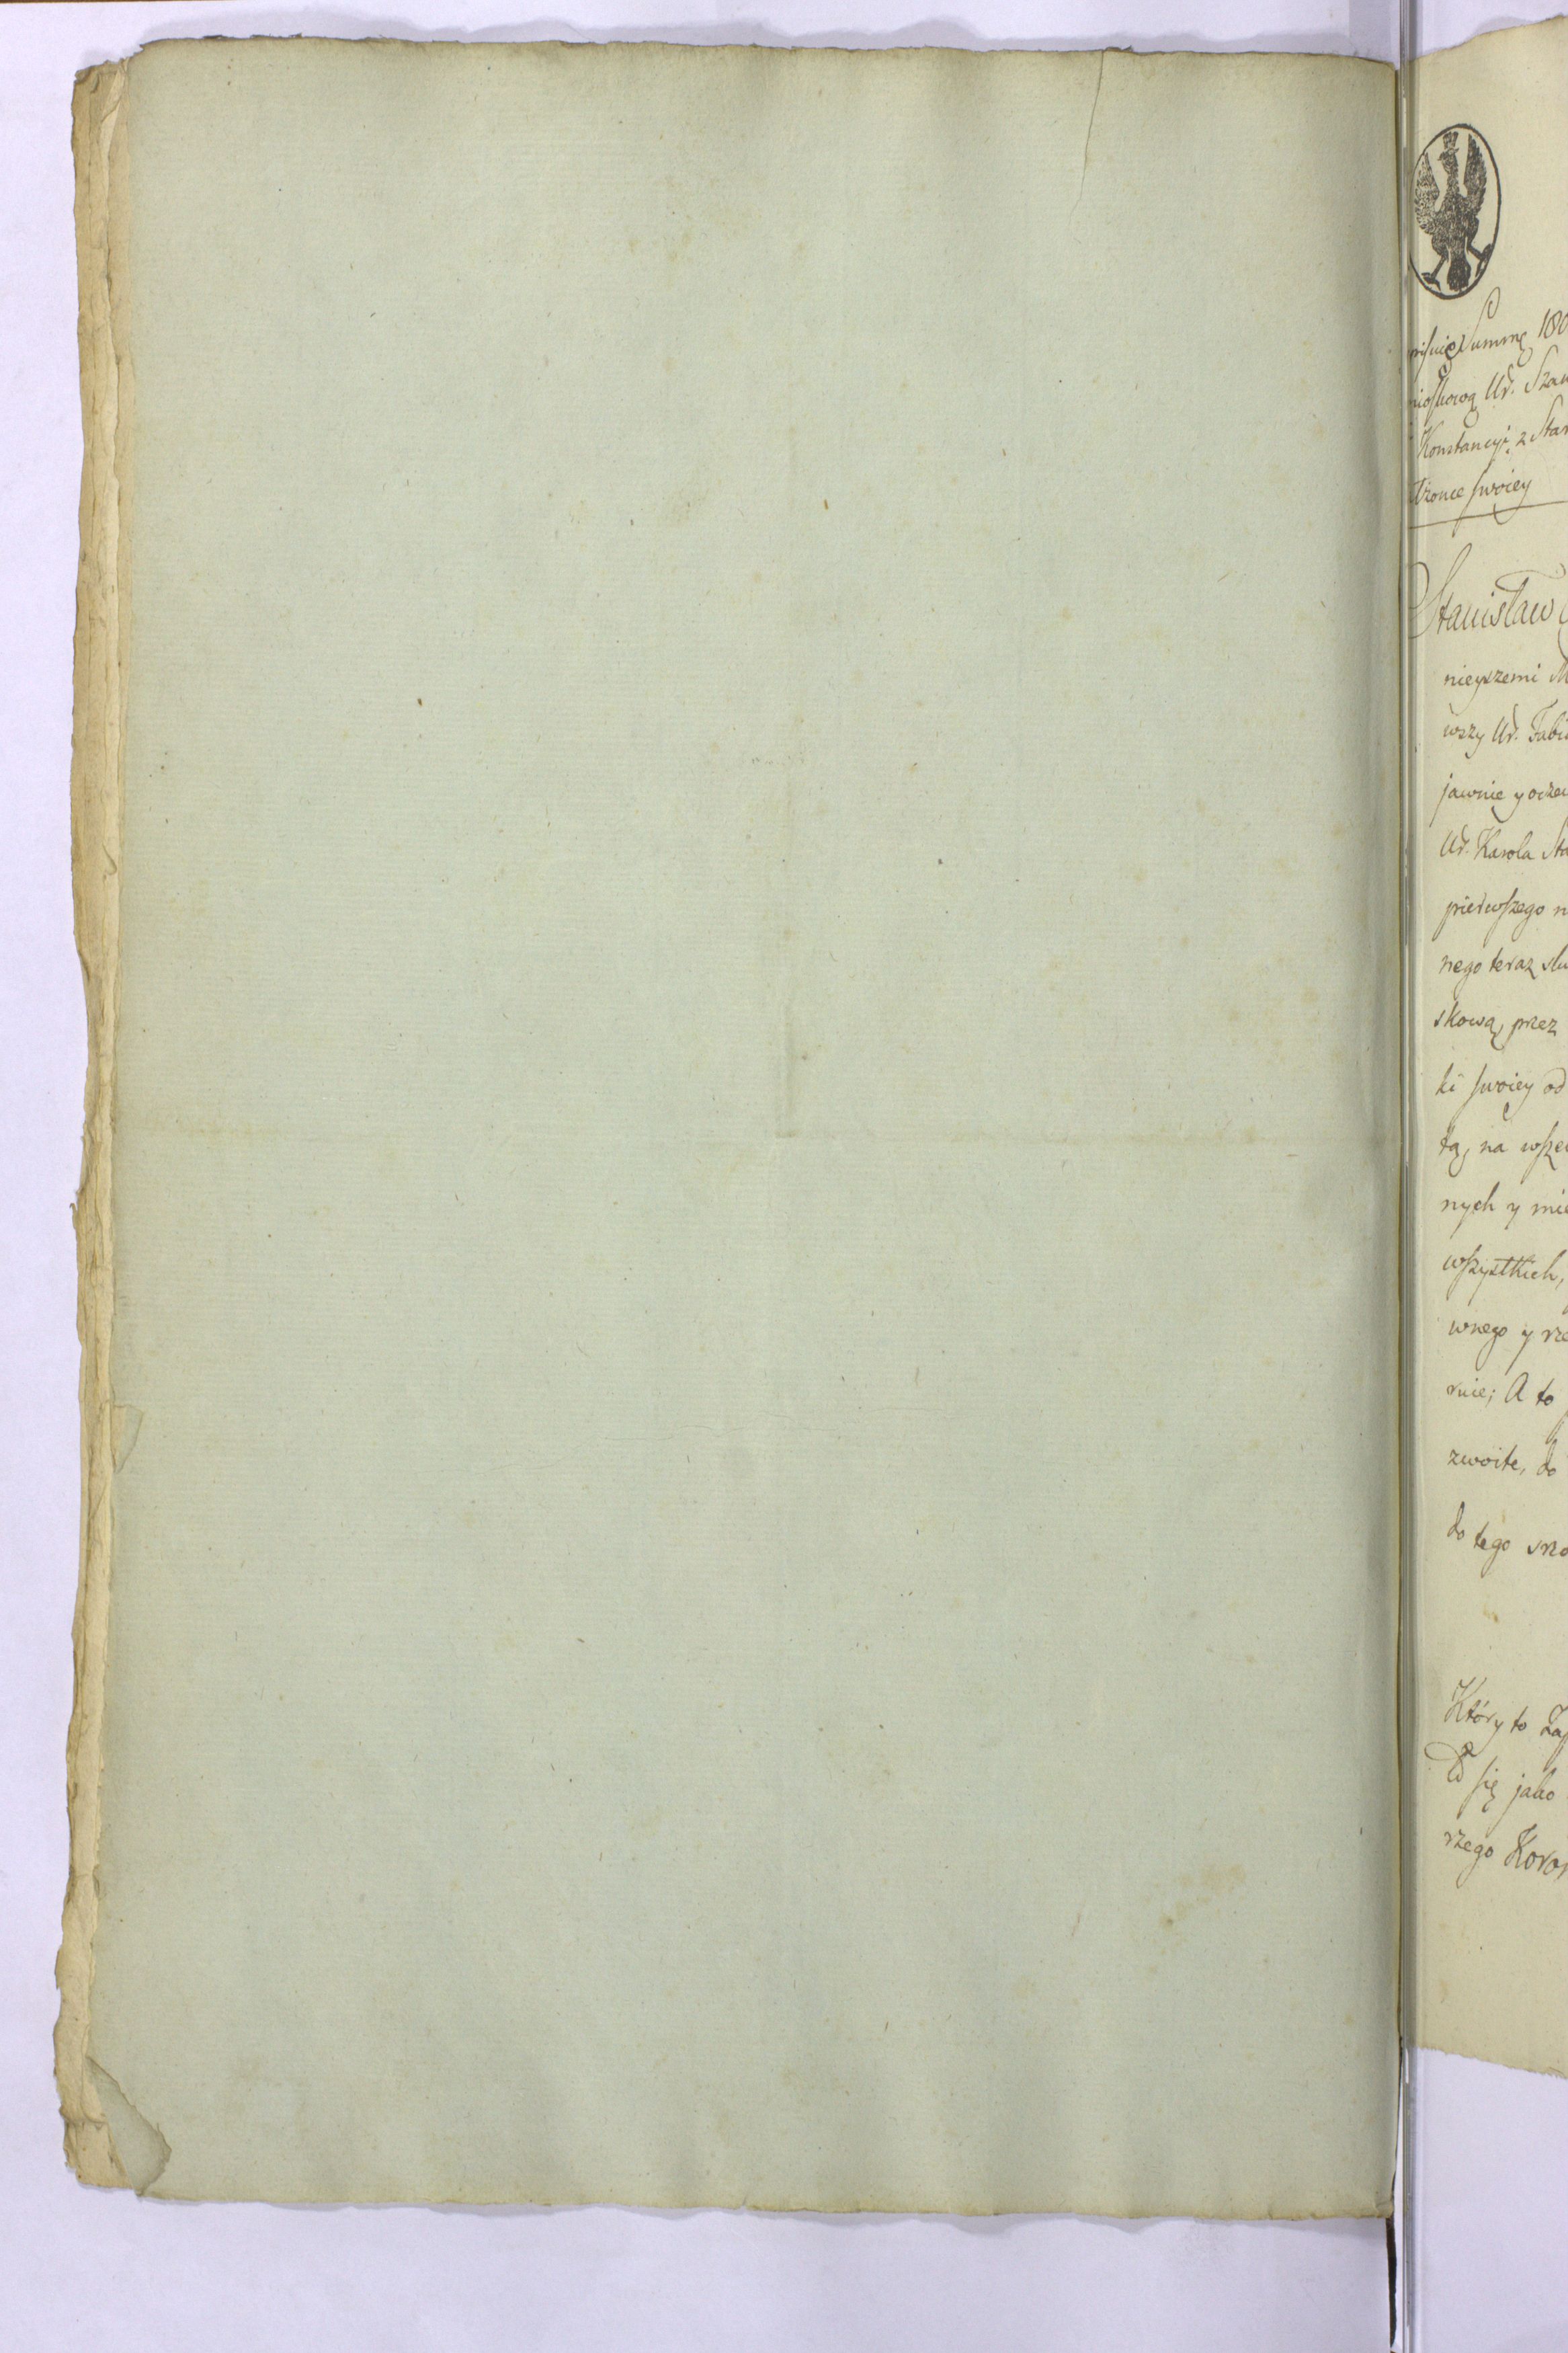 Summę 180
Ur. Szaw
Konstancyi z Star
Żonce swoiey
Stanisław
nieyszemi M
wszy Ur. Fabi
jawnie y oczew
Ur. Karola Sta
pierwszego n
nego teraz słu
skową, przez
ki swoiey od
tą, na wszel
nych y mie
wszystkich,
wnego y rze
rnie; A to
zwoite, do
do tego
Który to Zap
się jako
rzego Koron